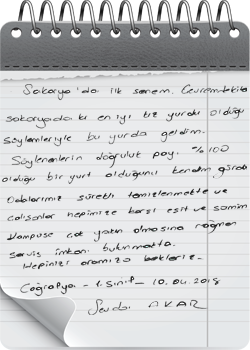 Sakarya'da ilk senem. Çevremdekiler
sakaryadaki en iyi kız yurdu olduğu
söylemleriyle bu yurda geldim.
Söylenenlerin doğruluk payı %100
olduğu bir yurt olduğunu kendim gördüm
Odalarımız sürekli temizlenmekte ve
çalışanlar hepimize karşı eşit ve samimi
Kampüse çok yakın olmasına rağmen
servis imkanı bulunmakta.
Hepinizi aramıza bekleriz.
Coğrafya - 1. Sınıf - 10.04.2018
Sevda AKAR